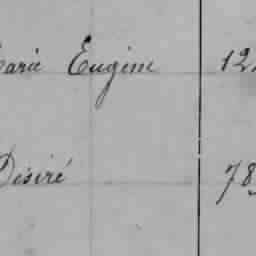 Marie Eugène 12
Désiré 78